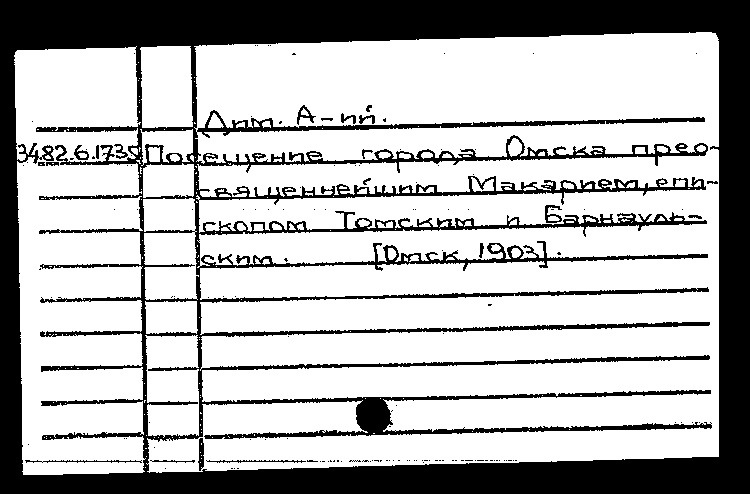 Дим. А-ий.
34.82.6.1738 Посещение города Омска прео-
священнейшим Макарием, епи-
скопом Томским и Барнауль-
ским. [Омск, 1903].